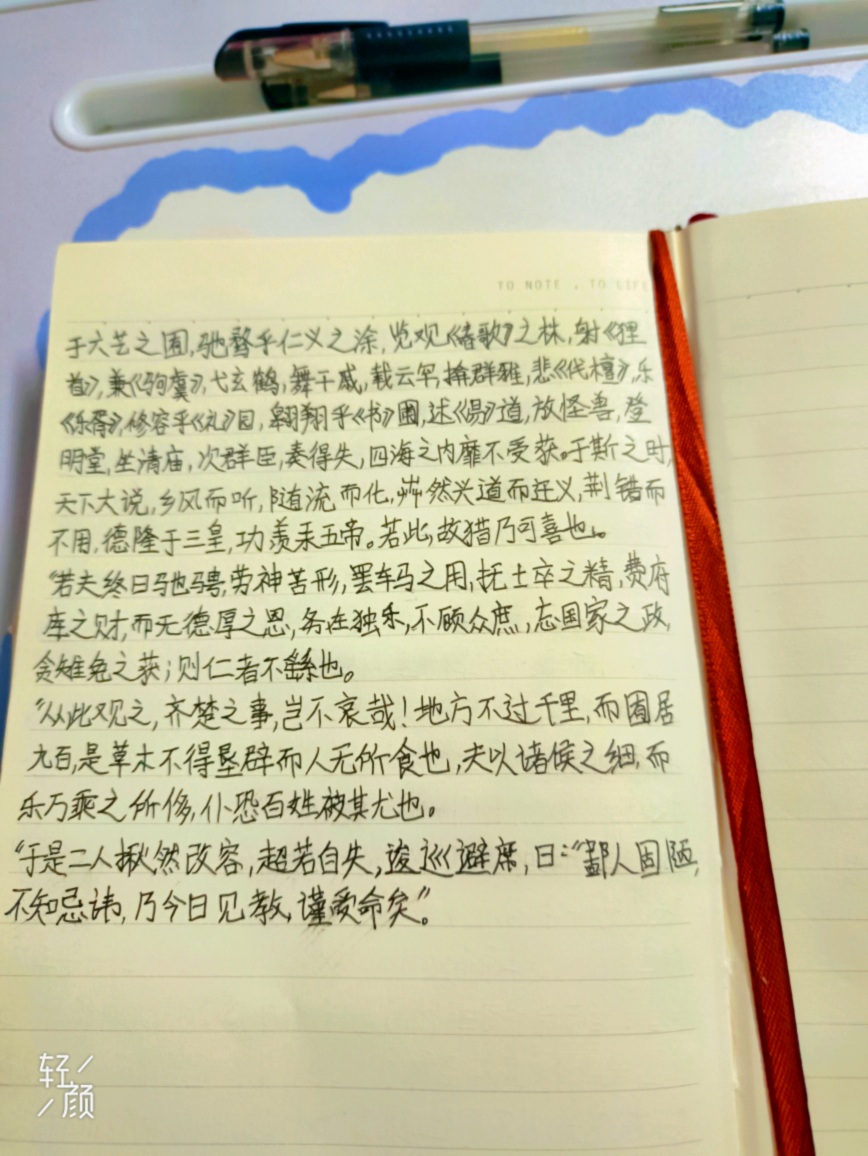 TO NOTE . TO LIFE
于六艺之囿,驰骛乎仁义之涂,览观《春歌》之林,射《狸
首》,兼《驺虞》,弋玄鹤,舞干戚,载云罕,揜群雅,悲《伐檀》,乐
《乐胥》,修容乎《礼》园,翱翔乎《书》圃,述《易》道,放怪兽,登
明堂,坐清庙,次群臣,奏得失,四海之内靡不受获。于斯之时,
天下大说,乡风而听,随流而化,芔然兴道而迁义,荆错而
不用,德隆于三皇,功羡于五帝。若此,故猎乃可喜也。
“若夫终日驰骋,劳神苦形,罢车马之用,抚士卒之精,费府
库之财,而无德厚之恩,务在独乐,不顾众庶,忘国家之政,
贪雉兔之获;则仁者不繇也。
“从此观之,齐楚之事,岂不哀哉!地方不过千里,而囿居
九百,是草木不得垦辟而人无所食也,夫以诸侯之细,而
乐万乘之所侈,仆恐百姓被其尤也。
“于是二人愀然改容,超若自失,逡巡避席,曰:“鄙人固陋,
不知忌讳,乃今日见教,谨受命矣”。
轻颜